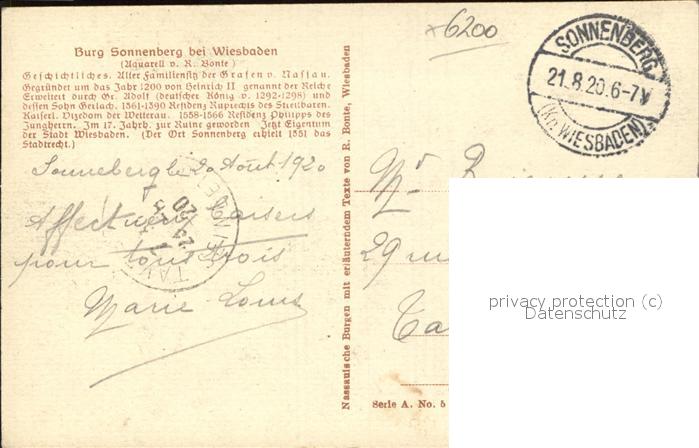 Burg Sonnenberg bei Wiesbaden
(Aquarell v. R. Bonte)
Geschichtliches. Alter Familiensitz der Grafen v. Nassau.
Gegründet um das Jahr 1200 von Heinrich II genannt der Reiche
Erweitert durch Gr. Adolf (deutscher König v. 1292-1298) und
dessen Sohn Gerlach. 1361-1390 Residenz Ruprechts des Streitbaren.
Kaiserl. Vizedom der Wetterau. 1558-1566 Residenz Philipps des
Jungherrn. Im 17. Jahrh. zur Ruine geworden Jetzt Eigentum
der Stadt Wiesbaden. (Der Ort Sonnenberg erhielt 1351 das
Stadtrecht.)
Sonneberg le 20 Août 1920
Affectueux baisers
pour tous trois
Marie Louis
Nassauische Burgen mit erläuterndem Texte von R. Bonte, Wiesbaden
6200
SONNENBERG
21.8.20.6-7V
(Kr. WIESBADEN)
Mr
29 rue
privacy protection (c)
Datenschutz
Serie A. No. 5